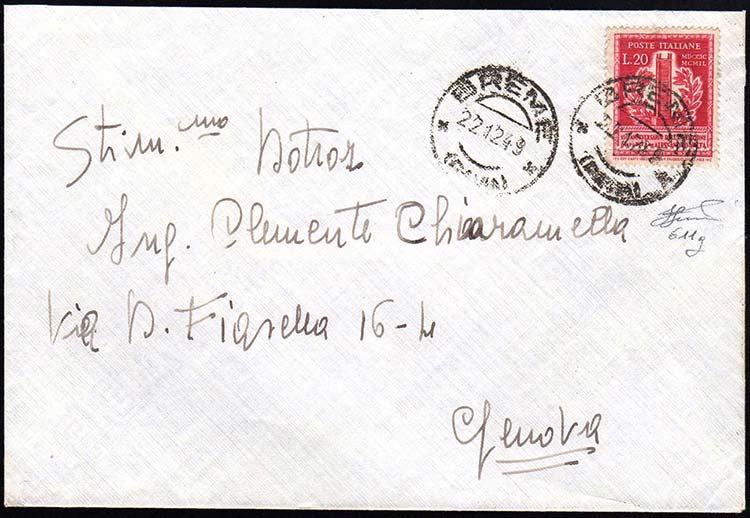 POSTE ITALIANE
L.20
MDCCIC
MCMIL
BREME
22.12.49
(PAVIA)
BREME
(PAVIA)
Stim.mo Dottor
Ing. Clemente Chiaramella
Via D. Fiasella 16-4
Genova